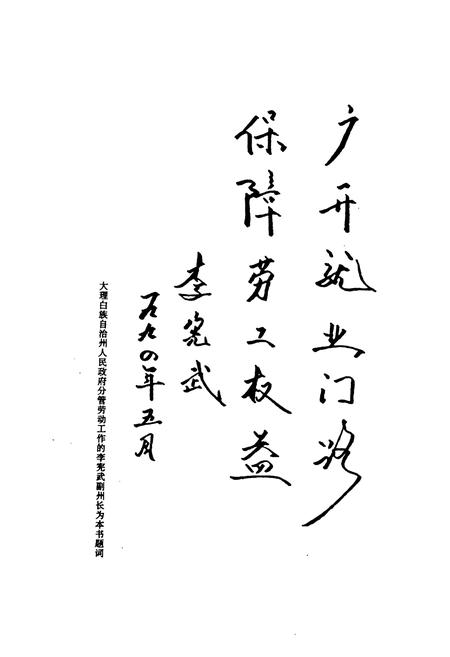 广开就业门路
保障劳工权益
李宪武
一九九〇年五月
大理白族自治州人民政府分管劳动工作的李宪武副州长为本书题词